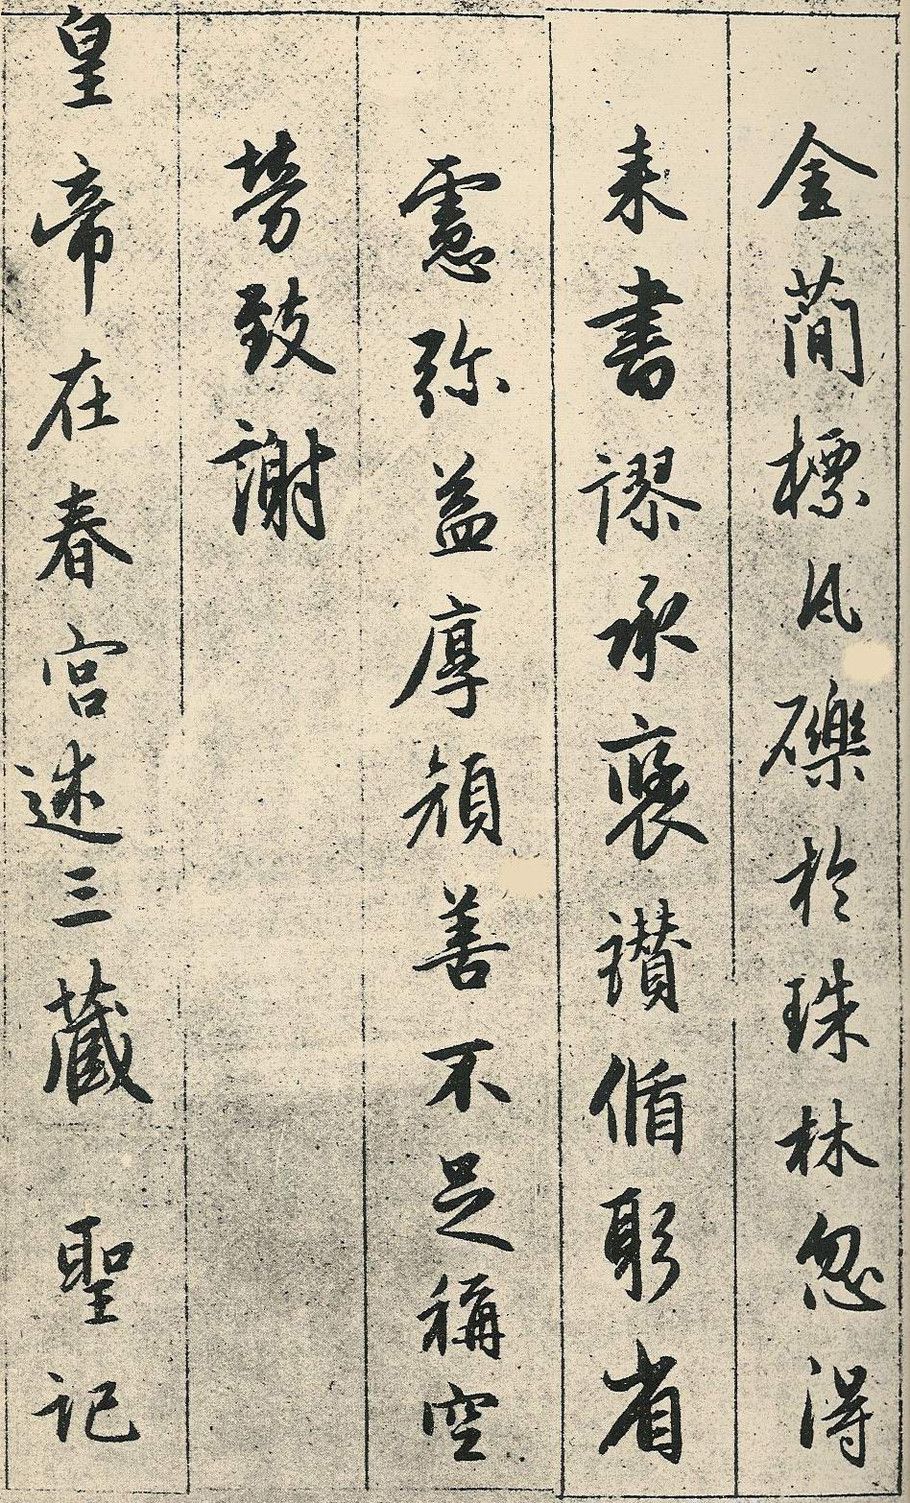 金簡標瓦礫於珠林忽得
来書謬承褒讃循躬省
慮弥益厚顔善不足稱空
勞致謝
皇帝在春宮述三藏聖記